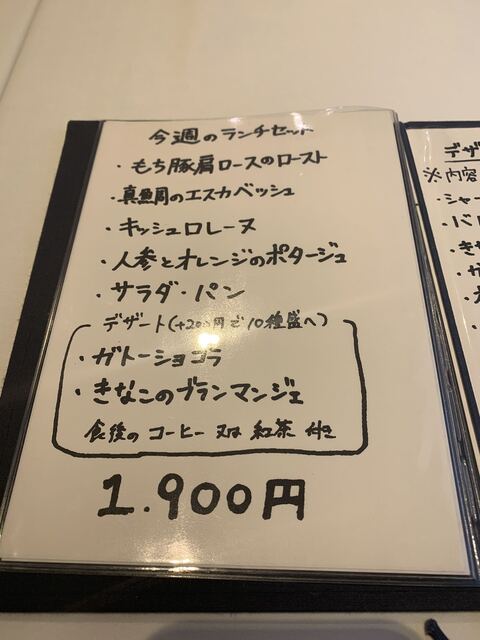 今週のランチセット
・もち豚肩ロースのロースト
・真魚周のエスカベッシュ
・キッシュロレーヌ
・人参とオレンジのポタージュ
・サラダ・パン
デザート(+200円で10種盛へ)
・ガトーショコラ
・きなこのブランマンジェ
食後の コーヒー 又は 紅茶 付き
1.900円
デザ
※内容
・シャー
・バ
・きな
・ガ